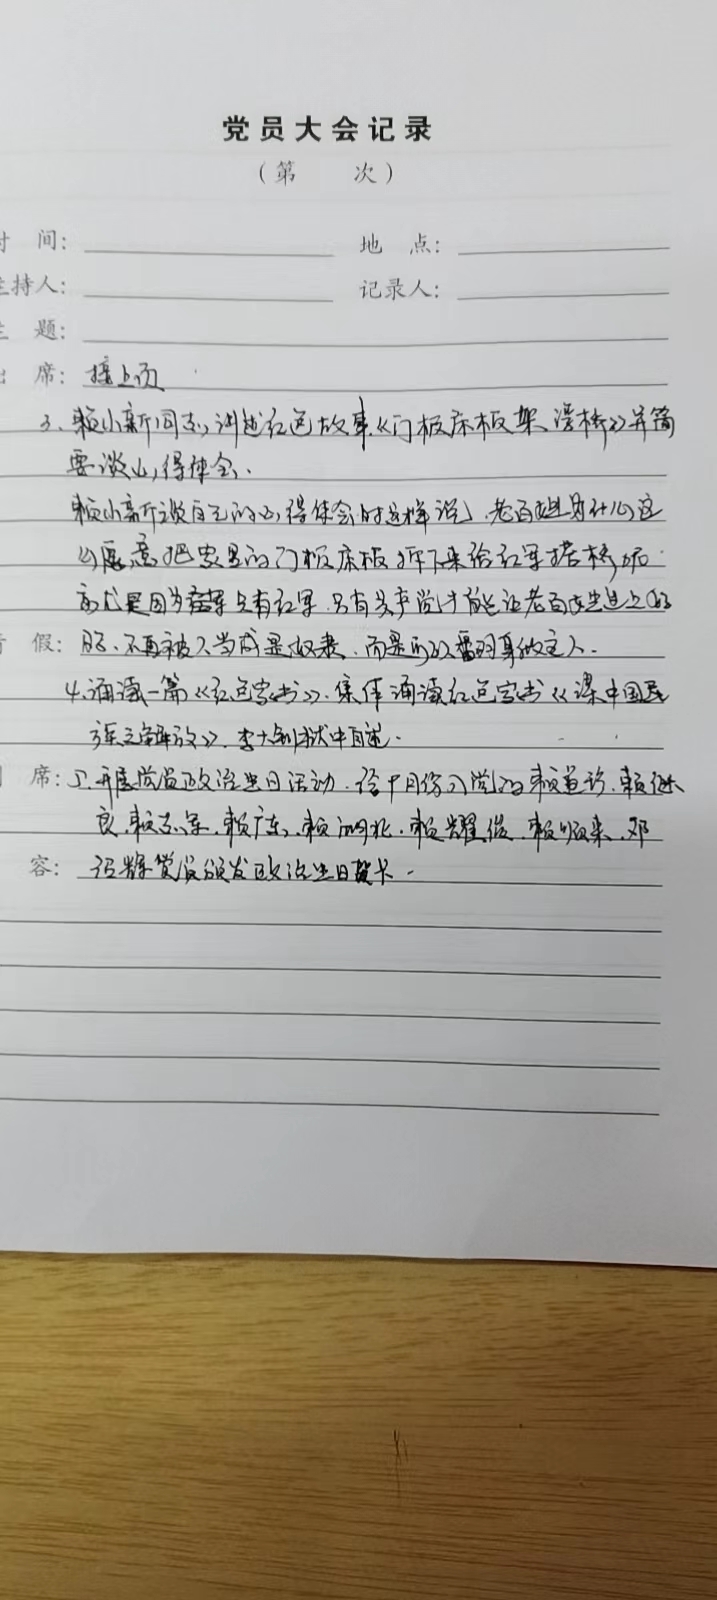 党员大会记录
（第 次）
时 间：
地 点：
主持人：
记录人：
主 题：
出 席：接上页
3、赖小新同志，讲述红色故事《门板床板架浮桥》并简
要谈心得体会、
赖小新谈自己的心得体会时这样说，老百姓为什么这
么愿意把家里的门板床板拆下来给红军搭桥呢
就是因为 只有红军、只有共产党才能让老百姓过上好
假：日子、不再被人当成是奴隶、而是可以翻身做主人.
4.诵读一篇《红色家书》.集体诵读红色家书《谋中国民
族之解放》.李大钊狱中自述.
席：5.开展党员政治生日活动.给十月份入党的赖 赖继
良.赖志军.赖广东.赖 .赖耀 .赖顺来.邓
容： 辉党员颁发政治生日贺卡.